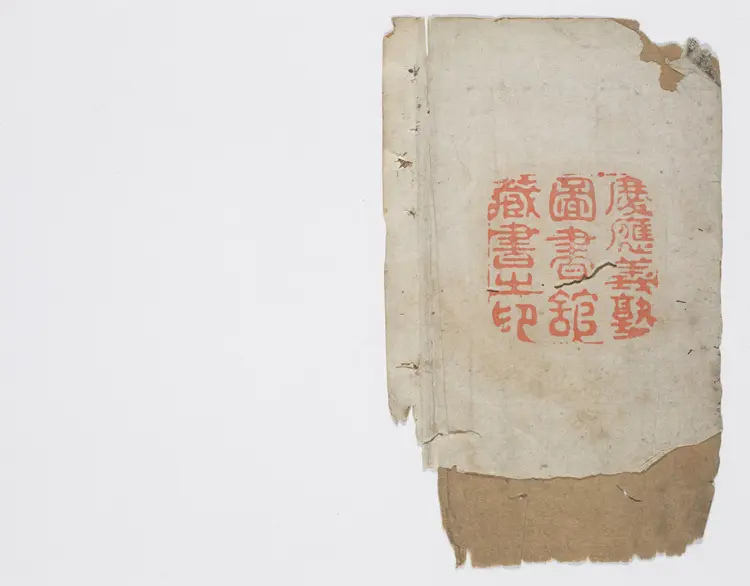 慶應義塾
圖書館
藏書之印